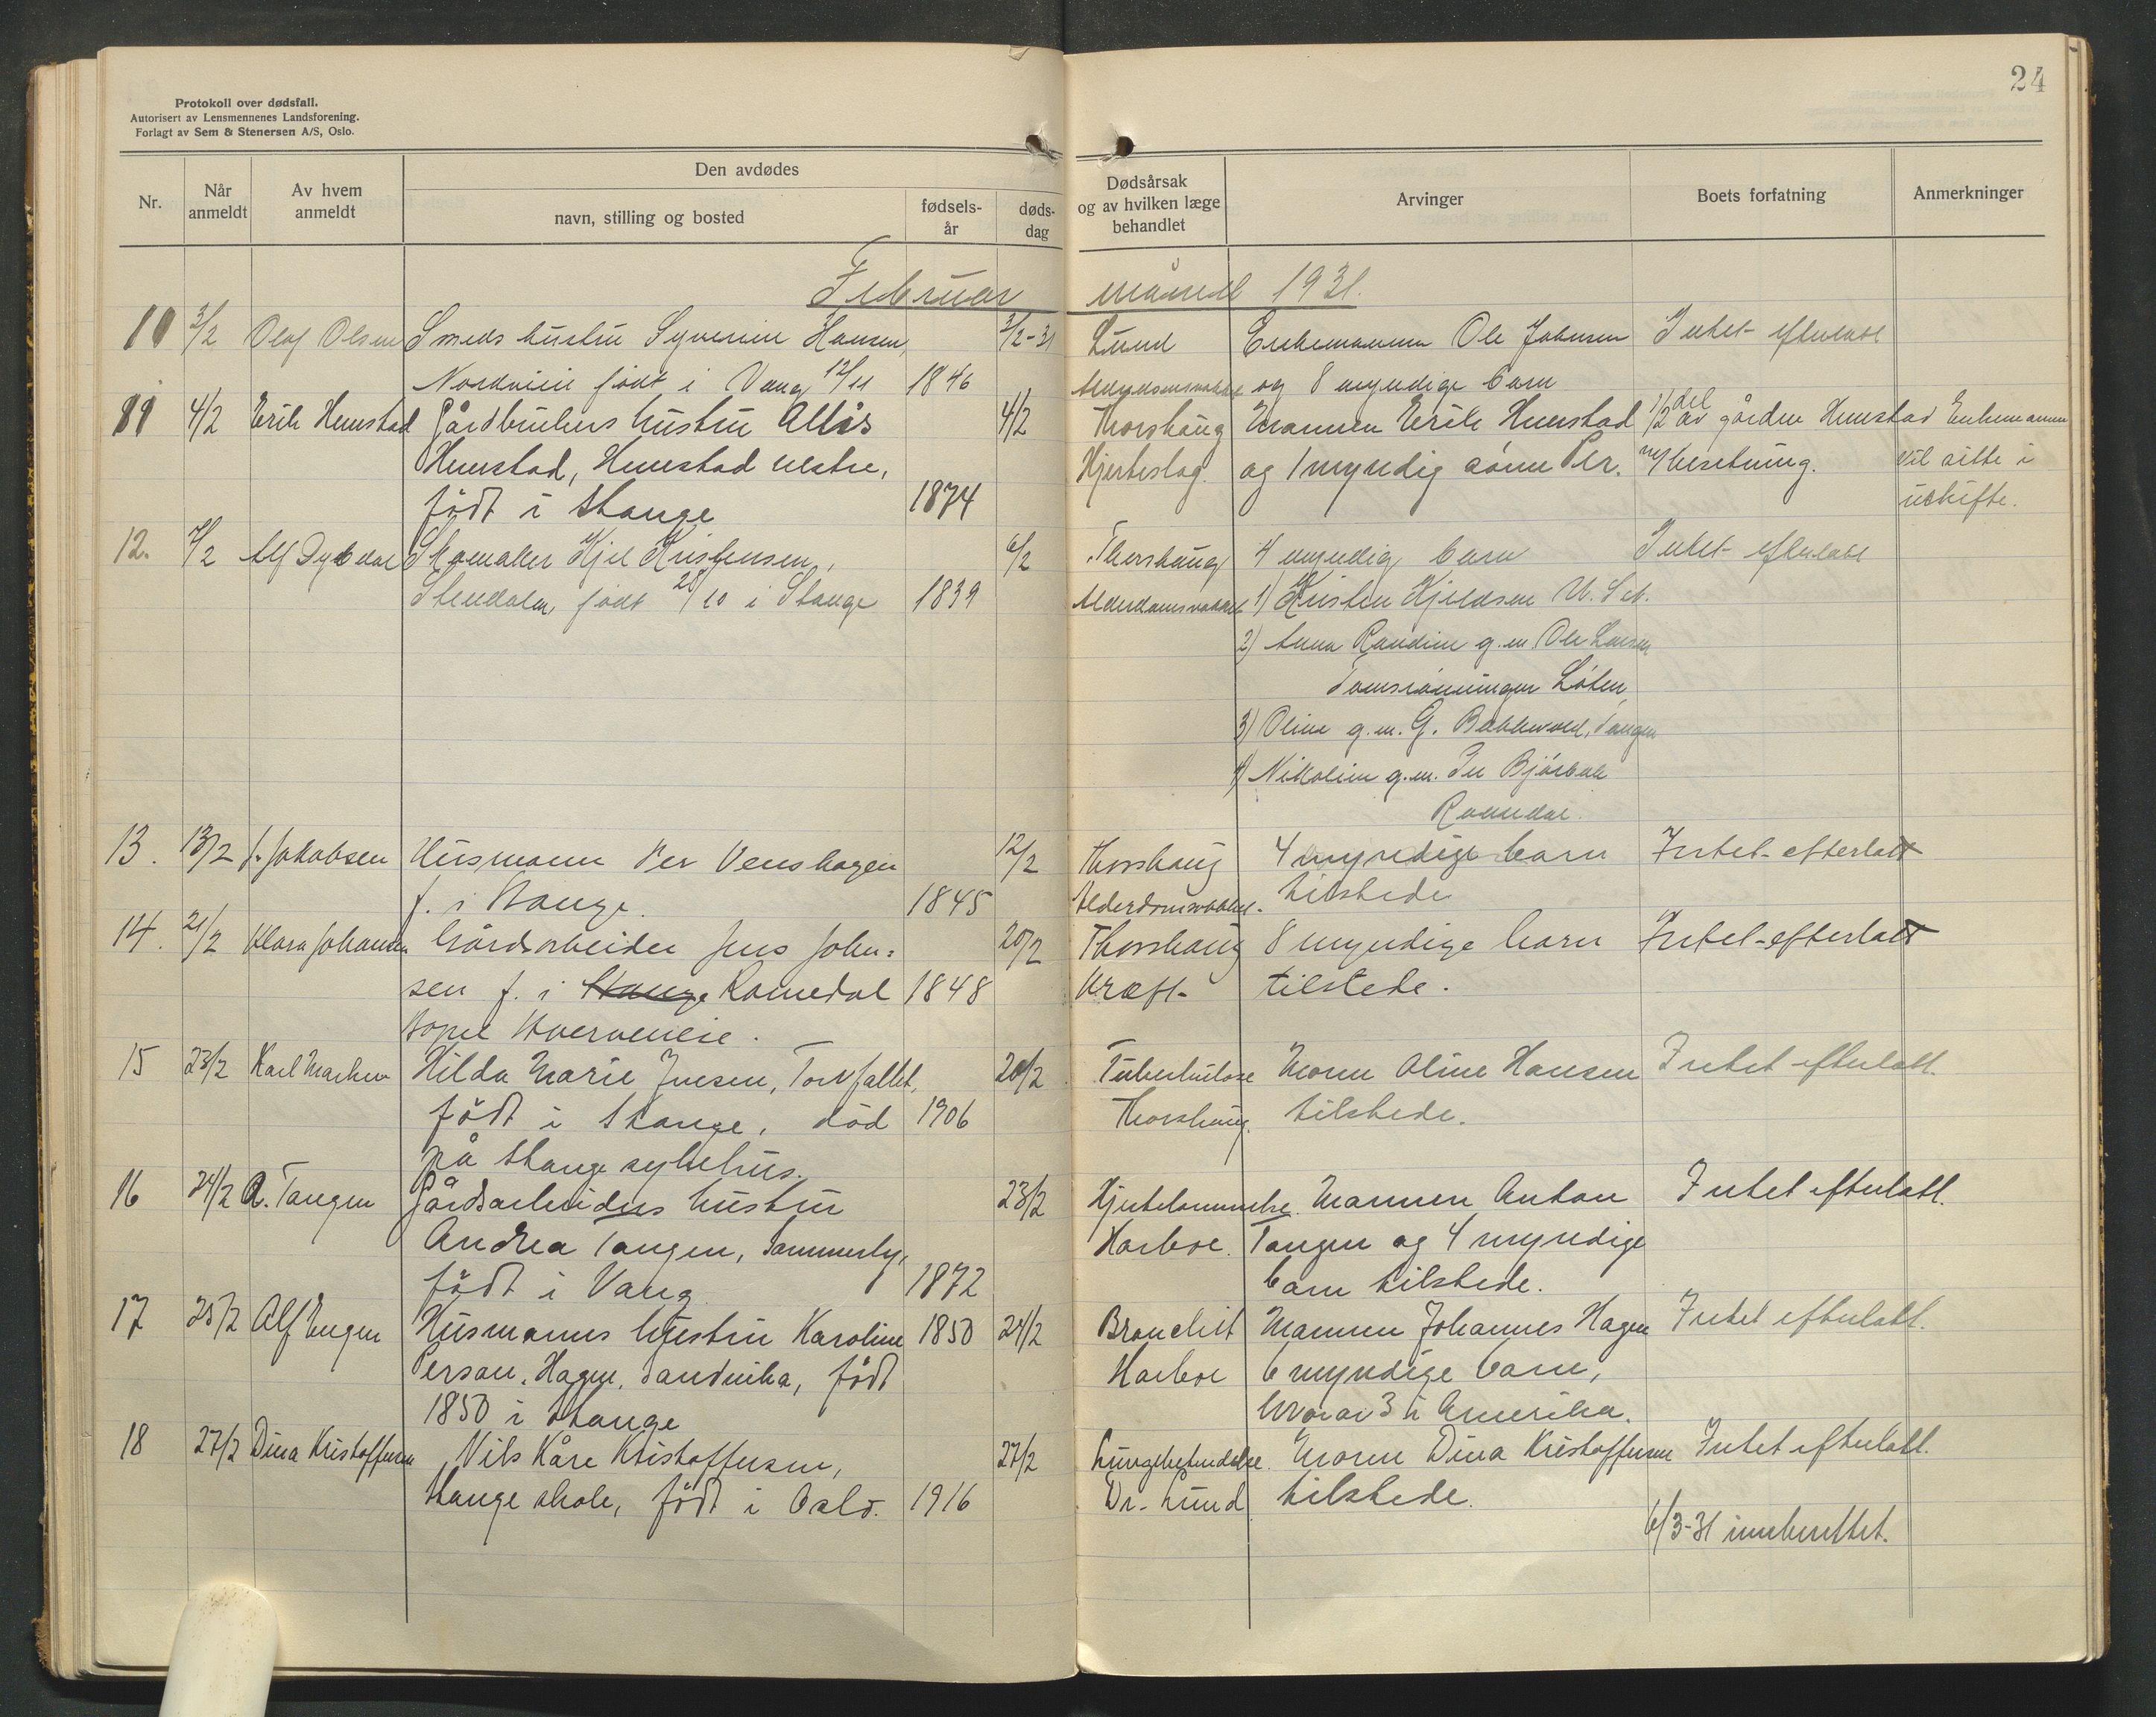 24
Protokoll over dødsfall.
Autorisert av Lensmennenes Landsforening.
Forlagt av Sem & Stenersen A/S, Oslo.
Nr.
Når anmeldt
Av hvem anmeldt
Den avdødes
navn, stilling og bosted
fødsels-år
døds-dag
Dødsårsak og av hvilken læge behandlet
Arvinger
Boets forfatning
Anmerkninger
Februar måned 1931.
10 3/2 Olaf Olsen Smeds hustru Syverine Hansen, 3/2-31 Lund Enkemannen Ole Johnsen Intet efterlatt
født i Vang 12/11 1846 og 8 myndige barn
11 4/2 Erik Hemstad Gårdbrukers hustru 4/2 Thorshaug Mannen Erik Hemstad 1/2 del av gården Hemstad Enkemannen
Hemstad, Hemstad vestre, Hjerteslag. og 1 myndig sønn Per. m/ besetning. vil sitte i
født i Stange 1874 uskifte.
12. 7/2 Alf Dybdal Skomaker Kjel Kristensen, 6/2 Thorshaug 4 myndig barn Intet efterlatt
født 28/10 i Stange 1839 Alderdomssvakhet 1) Kristen Kjeldsen U. S. A.
2) Anna Randine g.m. Ole Larsen
Løten
3) Oline g.m. G. Bakkevold, Tangen
4) Nikoline g.m. Per
Romedal.
13. 13/2 J. Jakobsen Husmann Per Venshagen 12/2 Thorshaug 4 myndige barn Intet efterlatt
f. i Stange. 1845 Alderdomssvakhet. tilstede
14. 21/2 Klara Johansen Gårdsarbeider Jens John- 20/2 Thorshaug 8 myndige barn Intet efterlatt
sen f. i Stange Romedal 1848 Kræft tilstede.
bopel
15 23/2 Karl Hilda Marie Jensen, Torvfallet, 20/2 Tuberkulose Moren Oline Hansen Intet efterlatt.
født i Stange, død 1906 Thorshaug. tilstede.
på Stange sykehus.
16 24/2 A. Tangen Gårdsarbeiders hustru 23/2 Hjertelammelse. Mannen Anton Intet efterlatt.
Andrea Tangen, Sammerby, Harboe. Tangen og 4 myndige
født i Vang 1872 barn tilstede.
17 25/2 Alf Engen Husmanns hustru Karoline 1850 24/2 Bronchit Mannen Johannes Hagen Intet efterlatt.
Person, Hagen, Sandvika, født Harboe 6 myndige barn,
1850 i Stange hvorav 3 i Amerika.
18 27/2 Dina Kristoffersen Nils Kåre Kristoffersen, 27/2 Lungebetendelse. Moren Dina Kristoffersen Intet efterlatt.
Stange skole, født i Oslo. 1916 Dr. Lund tilstede.
6/3-31 innberettet.